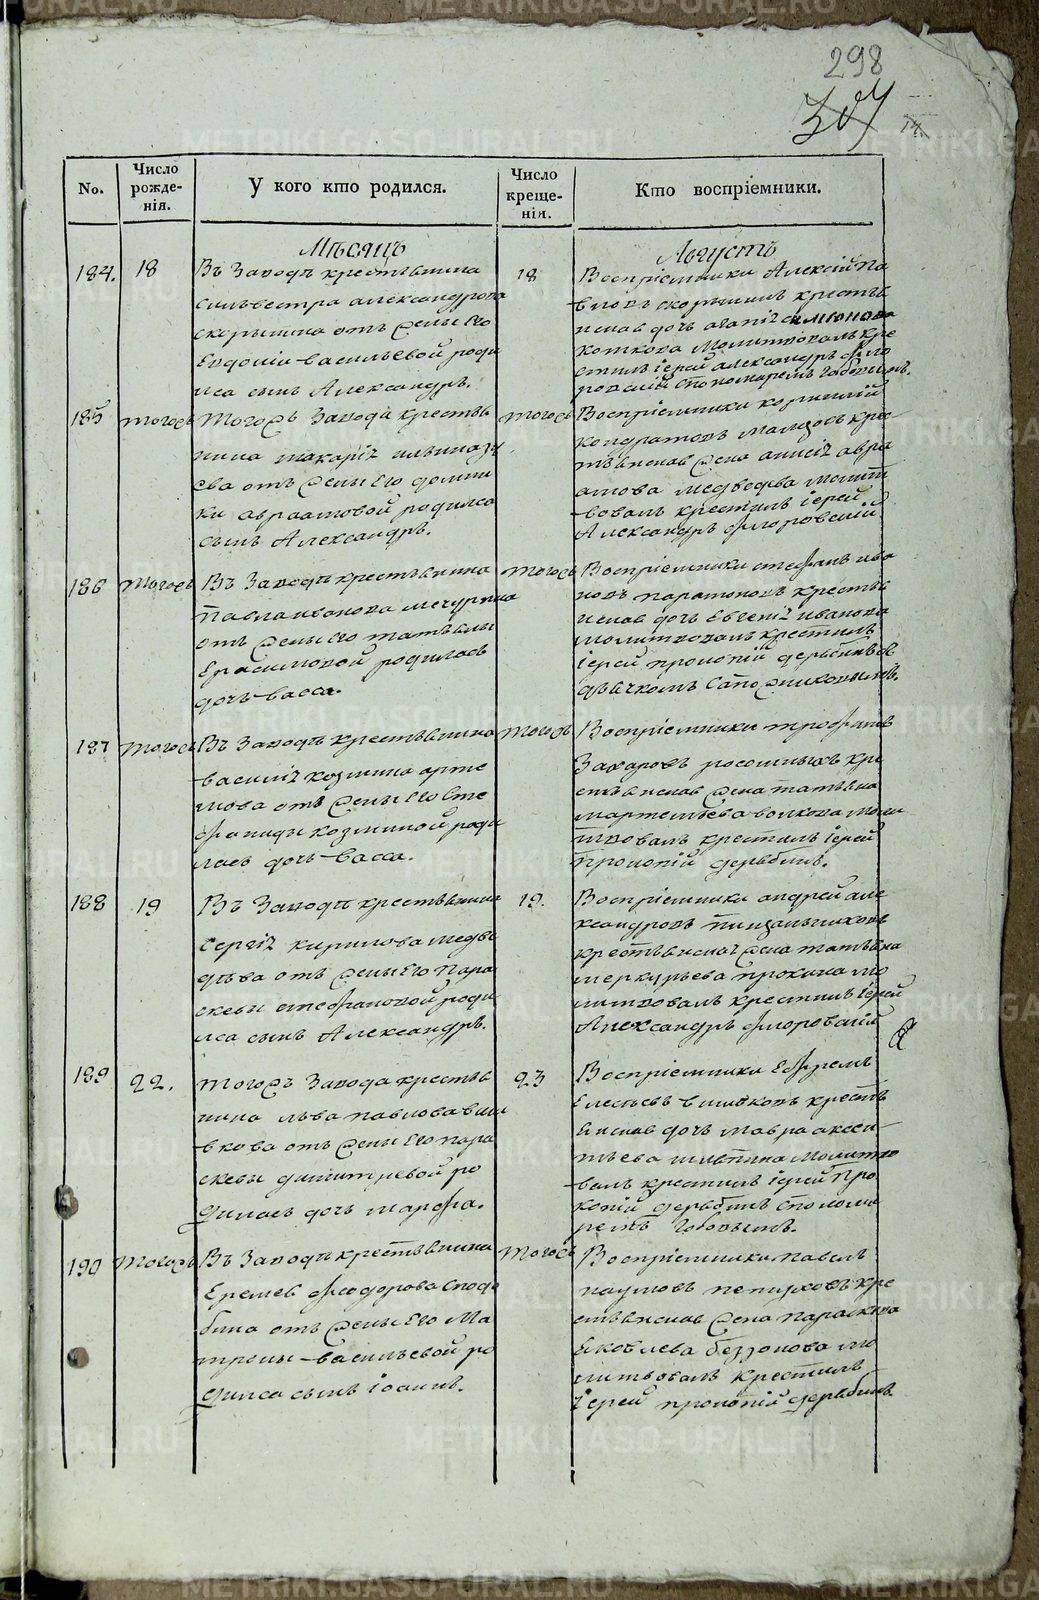 298
307
No.
Число рожде-нія.
У кого кто родился.
Число креще-нія.
Кто воспріемники.
Мѣсяцъ
Августъ
184. 18
Въ Заводѣ крестьянина
силивестра александрова
скорынина отъ жены Его
Евдокіи васильевой роди
лса сынъ Александръ.
18
Воспріемники Алексій Па
вловъ скорынинъ крестья
нская дочь агапія
коткова молитвовалъ кре
стилъ іерей александръ фло
ровскій спономаремъ
185 тогожъ
тогожъ Завода крестья
нина макарія
ева отъ жены Его домни
ки авраамовой родился
сынъ Александръ.
тогожъ
Воспріемники корнилій
кондратовъ мальцовъ крес
тьянская жена анисія авра
амова медведева молит
вовалъ крестилъ іерей
Александръ флоровскій
186 тогожъ
Въ Заводѣ крестьянина
Павла иванова мичурина
отъ жены Его татьяны
Ерасимовой родилась
дочь васса.
тогожъ
Воспріемники стефанъ ива
новъ парамоновъ крестья
нская дочь Евгенія иванова
молитвовалъ крестилъ
іерей прокопій дерябинъ съ
дьячкомъ Сапожниковымъ.
187 тогожъ
Въ Заводѣ крестьянина
василія козмина арте
мова отъ жены Его Сте
фаниды козминой роди
лась дочь васса.
тогожъ
Воспріемники трофимъ
Захаровъ росошныхъ кре
стьянская жена татьяна
мартемьева волкова моли
твовалъ крестилъ іерей
Прокопій дерябинъ.
188 19
Въ Заводѣ крестьянина
сергія кирилова медве
дѣва отъ жены Его Пара
скевы стефановой роди
лса сынъ Александръ.
19.
Воспріемники андрей але
ксандровъ пищальниковъ
крестьянская жена татьяна
меркурьева прокина мо
литвовалъ крестилъ іерей
Александръ флоровскій
189 22.
тогожъ Завода крестья
нина льва павлова виш
вкова отъ жены Его пара
скевы димитріевой ро
дилась дочь марфа.
23
Воспріемники Ефремъ
Елесеевъ вишвковъ кресть
янская дочь мавра аксен
тьева шляпина молитво
валъ крестилъ іерей Про
копій дерябинъ спонома
ремъ
190 тогожъ
Въ Заводѣ крестьянина
Еремея феодорова слоде
бина отъ жены Его Ма
троны васильевой ро
дилса сынъ іоаннъ.
тогожъ
Воспріемники павелъ
наумовъ кре
стьянская жена параскева
яковлева беззонова мо
литвовалъ крестилъ
іерей прокопій дерябинъ
METRIKI.GASO-URAL.RU